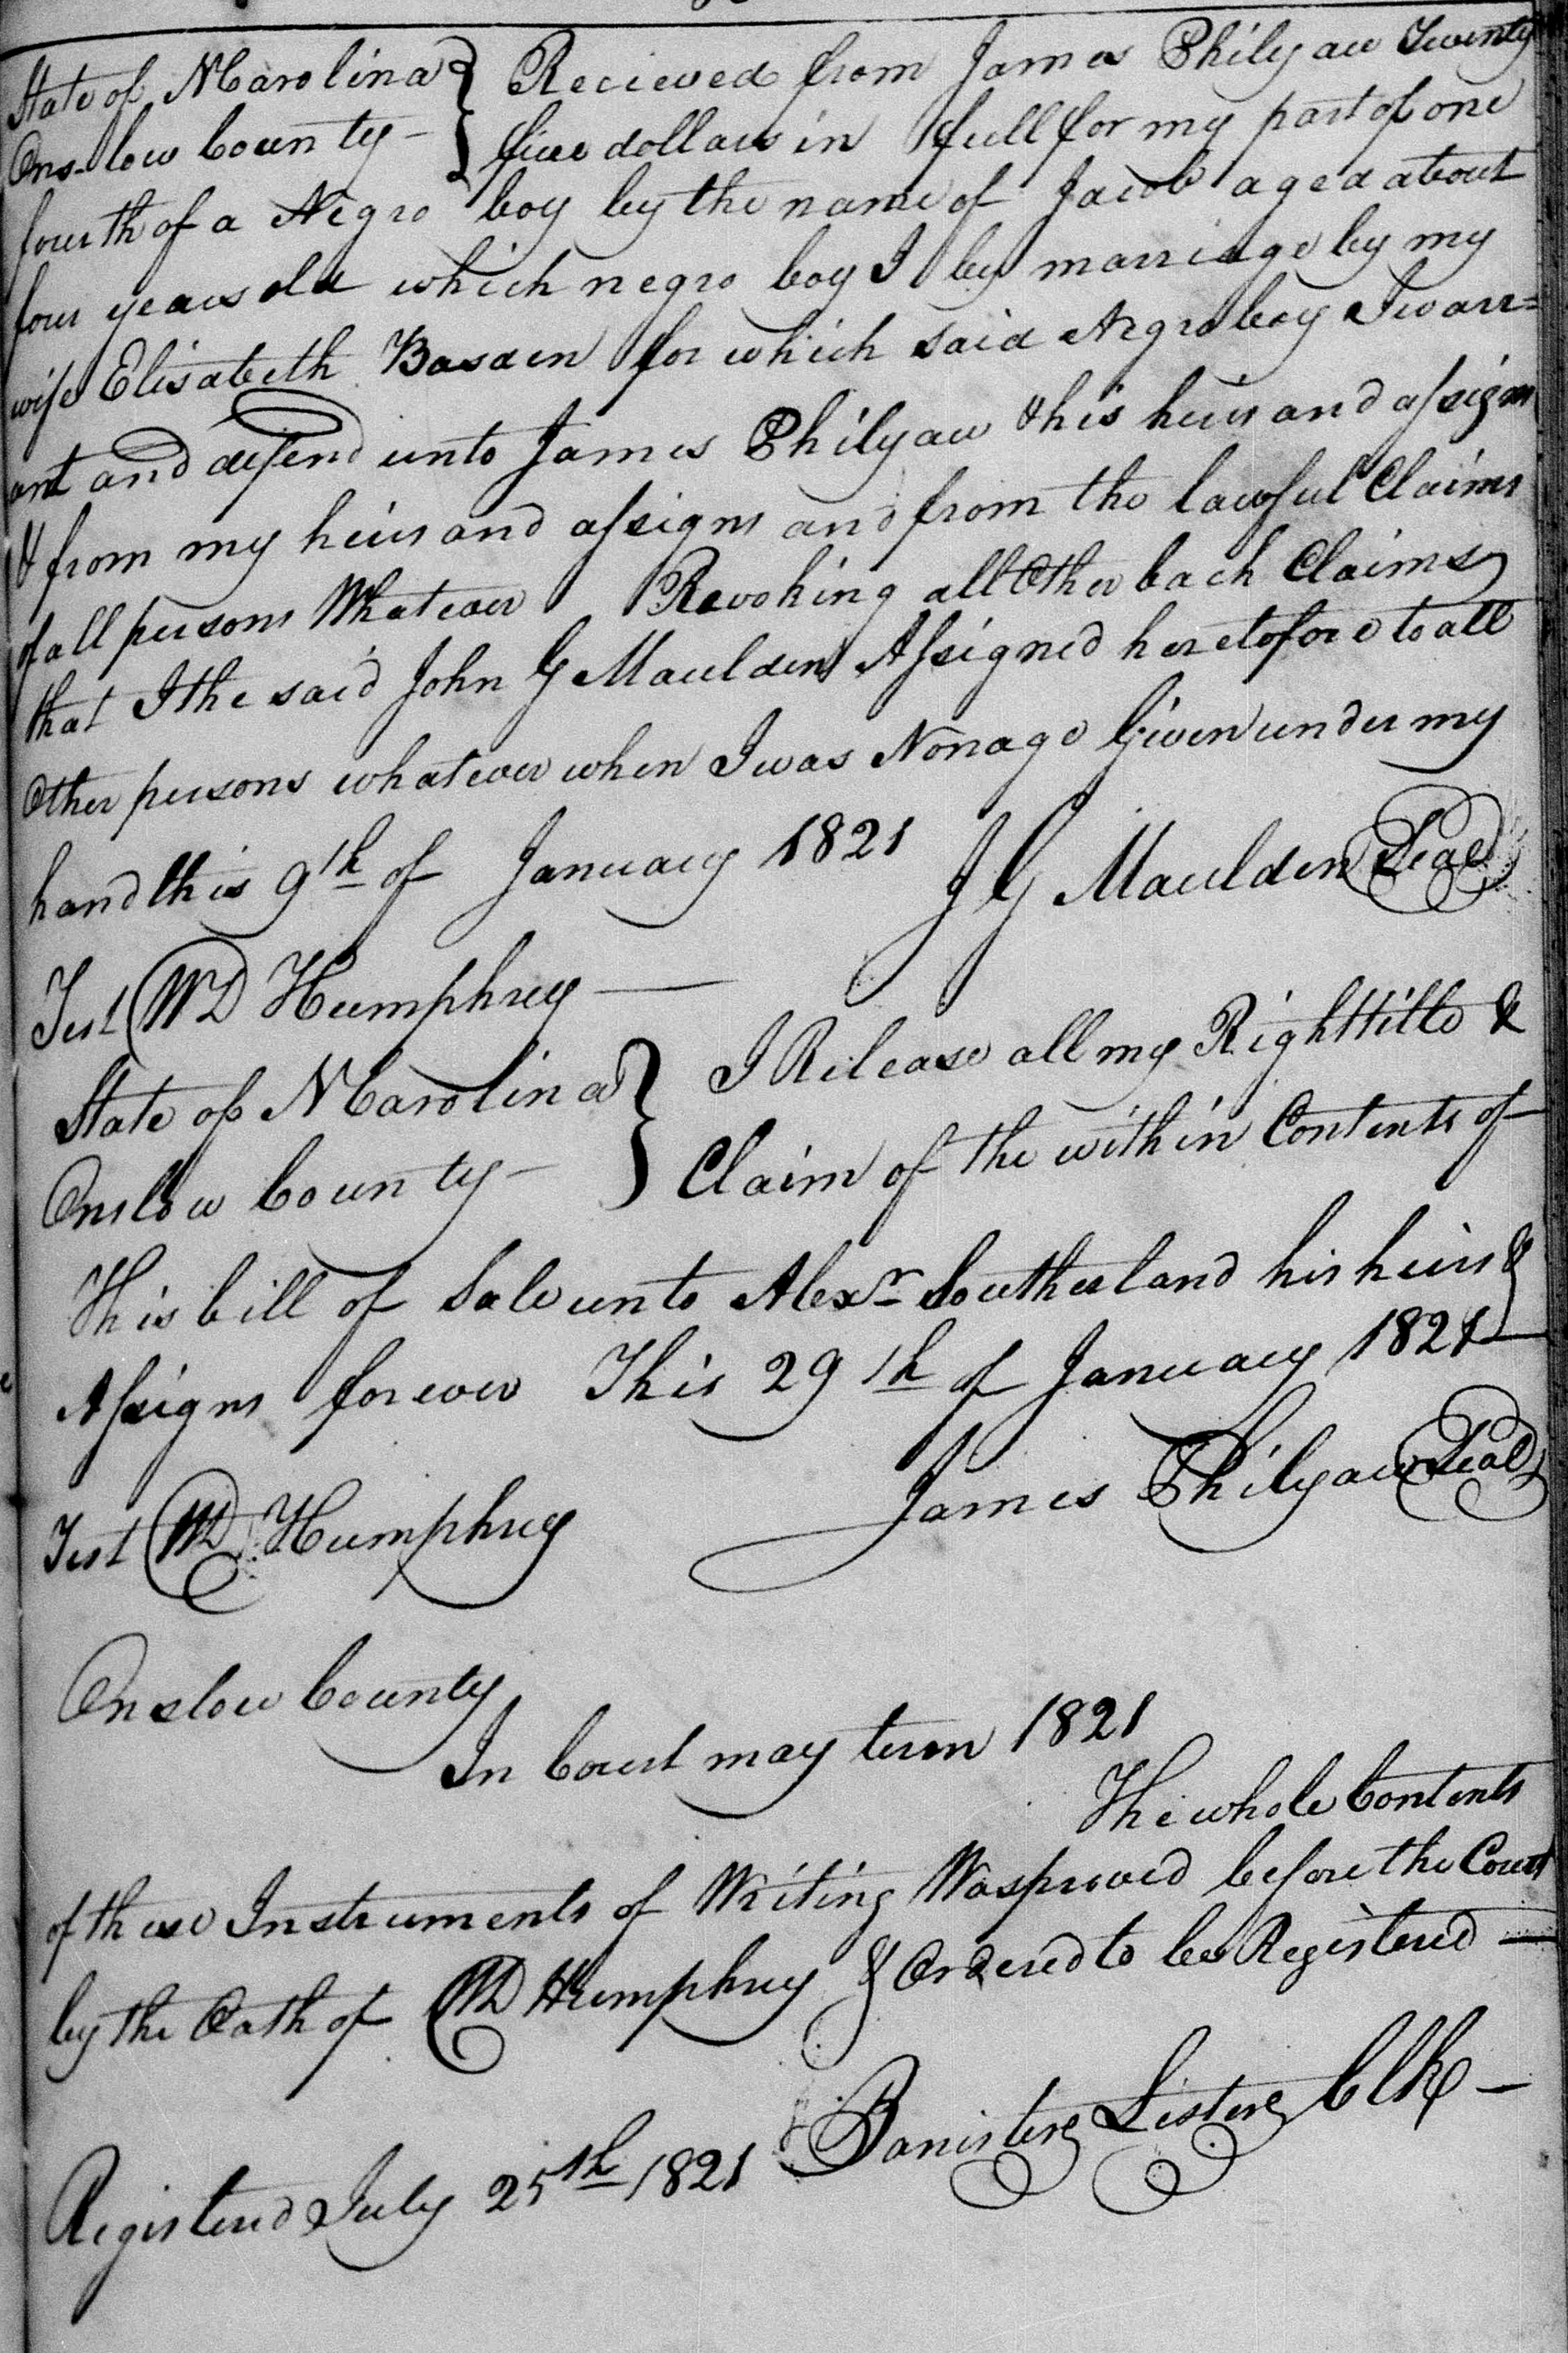 State of N Carolina } Recieved from James Philyaw Twenty
Onslow County – } five dollars in full for my part of one
fourth of a Negro boy by the name of Jacob aged about
four years old which negro boy I by marriage by my
wife Elisabeth Basden for which said Negro boy I warr=
ant and defend unto James Philyaw & his heirs and assigns
& from my heirs and assigns and from the lawful Claims
of all persons Whatever Revoking all Other back Claims
that I the said John G Maulden Assigned heretofore to all
Other persons whatever when I was Nonage Given under my
hand this 9th of January 1821
J G Maulden Seal
Test WD Humphrey —
State of N Carolina } I Release all my Right title &
Onslow County – } Claim of the within Contents of
This bill of Sale unto Alexr Southerland his heirs &
Assigns forever This 29th of January 1821
James Philyaw Seal
Test WD Humphrey
Onslow County
In Court may term 1821
The whole Contents
of these Instruments of Writing Was proved before the Court
by the Oath of WD Humphrey & Ordered to be Registered —
Banister Lister Clk –
Registered July 25th 1821